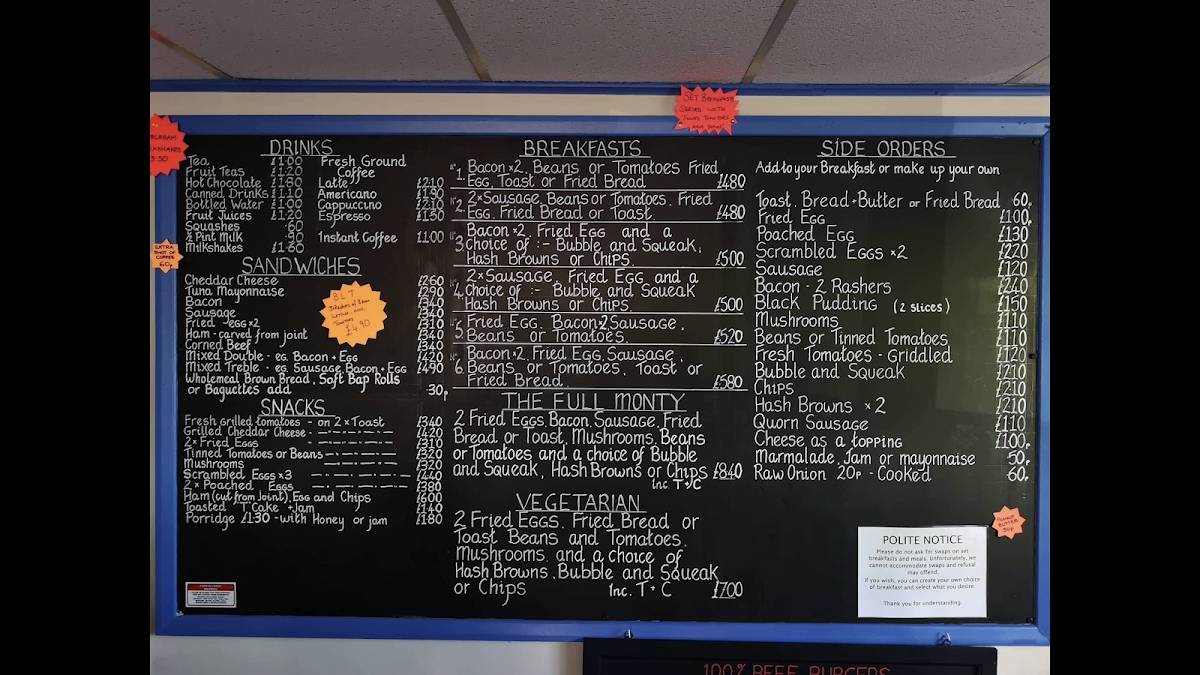 SET BREAKFASTS
SERVED WITH
DRINKS
Tea £1·00
Fruit Teas £1·20
Hot Chocolate £1·80
Canned Drinks £1·10
Bottled Water £1·00
Fruit Juices £1·20
Squashes ·60
½ Pint Milk ·90
Milkshakes
Fresh Ground
Coffee
Latte £2·10
Americano £1·90
Cappuccino £2·10
Espresso £1·50
Instant Coffee £1·00
EXTRA
SHOT OF
COFFEE
60p
SANDWICHES
Cheddar Cheese £260
Tuna Mayonnaise £290
Bacon £340
Sausage £340
Fried egg×2 £310
Ham - carved from joint £340
Corned Beef £340
Mixed Double - eg. Bacon + Egg £420
Mixed Treble - eg. Sausage, Bacon + Egg £490
Wholemeal Brown Bread, Soft Bap Rolls
or Baguettes add 30p
BLT
£4.90
SNACKS
Fresh grilled tomatoes - on 2×Toast £340
Grilled Cheddar Cheese £420
2×Fried Eggs £310
Tinned Tomatoes or Beans £320
Mushrooms £320
Scrambled Eggs ×3 £440
2× Poached Eggs £380
Ham (cut from joint), Egg and Chips £600
Toasted 'T' Cake + Jam £140
Porridge £1·30 - with Honey or jam £180
BREAKFASTS
Nº1. Bacon×2, Beans or Tomatoes Fried
Egg, Toast or Fried Bread £480
Nº2. 2×Sausage, Beans or Tomatoes, Fried
Egg, Fried Bread or Toast. £480
Bacon×2, Fried Egg and a
3 Choice of :- Bubble and Squeak,
Hash Browns or Chips. £500
2×Sausage, Fried Egg and a
4 Choice of :- Bubble and Squeak
Hash Browns or Chips. £500
Nº5 Fried Egg, Bacon×2, Sausage,
Beans or Tomatoes. £520
Nº6. Bacon×2, Fried Egg, Sausage,
Beans or Tomatoes, Toast or
Fried Bread. £580
THE FULL MONTY
2 Fried Eggs, Bacon, Sausage, Fried
Bread or Toast, Mushrooms, Beans
or Tomatoes and a choice of Bubble
and Squeak, Hash Browns or Chips £840
Inc. T+/C
VEGETARIAN
2 Fried Eggs, Fried Bread or
Toast Beans and Tomatoes,
Mushrooms and a choice of
Hash Browns, Bubble and Squeak
or Chips Inc. T + C £700
SIDE ORDERS
Add to your Breakfast or make up your own
Toast, Bread+Butter or Fried Bread 60p
Fried Egg £100
Poached Egg £130
Scrambled Eggs ×2 £220
Sausage £120
Bacon - 2 Rashers £240
Black Pudding (2 slices) £150
Mushrooms £110
Beans or Tinned Tomatoes £110
Fresh Tomatoes - Griddled £120
Bubble and Squeak £210
Chips £210
Hash Browns ×2 £210
Quorn Sausage £110
Cheese as a topping £100
Marmalade, Jam or mayonnaise 50p
Raw Onion 20p - Cooked 60p
PEANUT
BUTTER
50p
POLITE NOTICE
Please do not ask for swaps on set
breakfasts and meals. Unfortunately, we
cannot accommodate swaps and refusal
may offend.
If you wish, you can create your own choice
of breakfast and select what you desire.
Thank you for understanding.
100% BEEF BURGERS